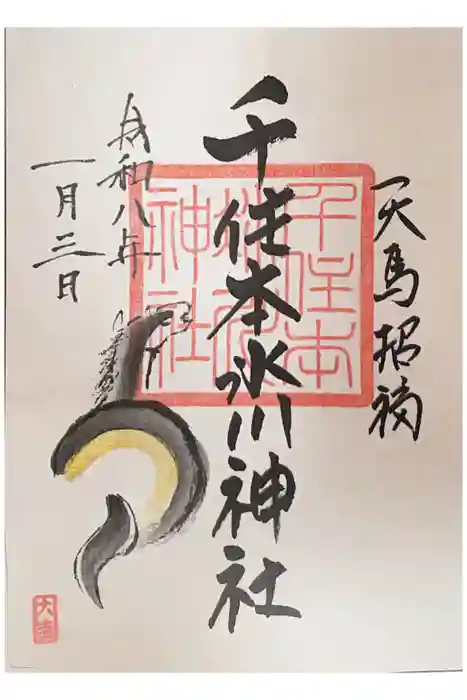 天馬招福
千住本氷川神社
令和八年
一月三日
千住本
氷川
神社
大吉